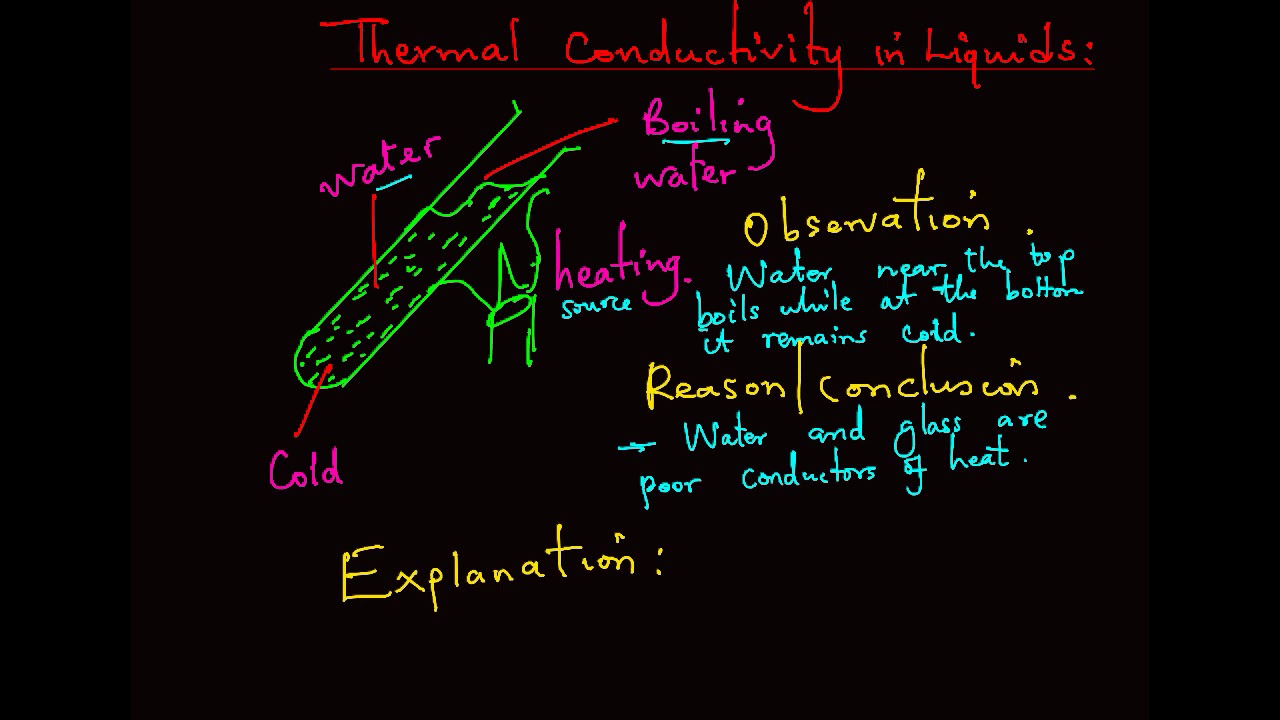 Thermal Conductivity in Liquids:
Boiling
water
water
Observation.
heating.
source
Water near the top
boils while at the bottom
it remains cold.
Reason/conclusion.
- Water and glass are
poor conductors of heat.
Cold
Explanation: